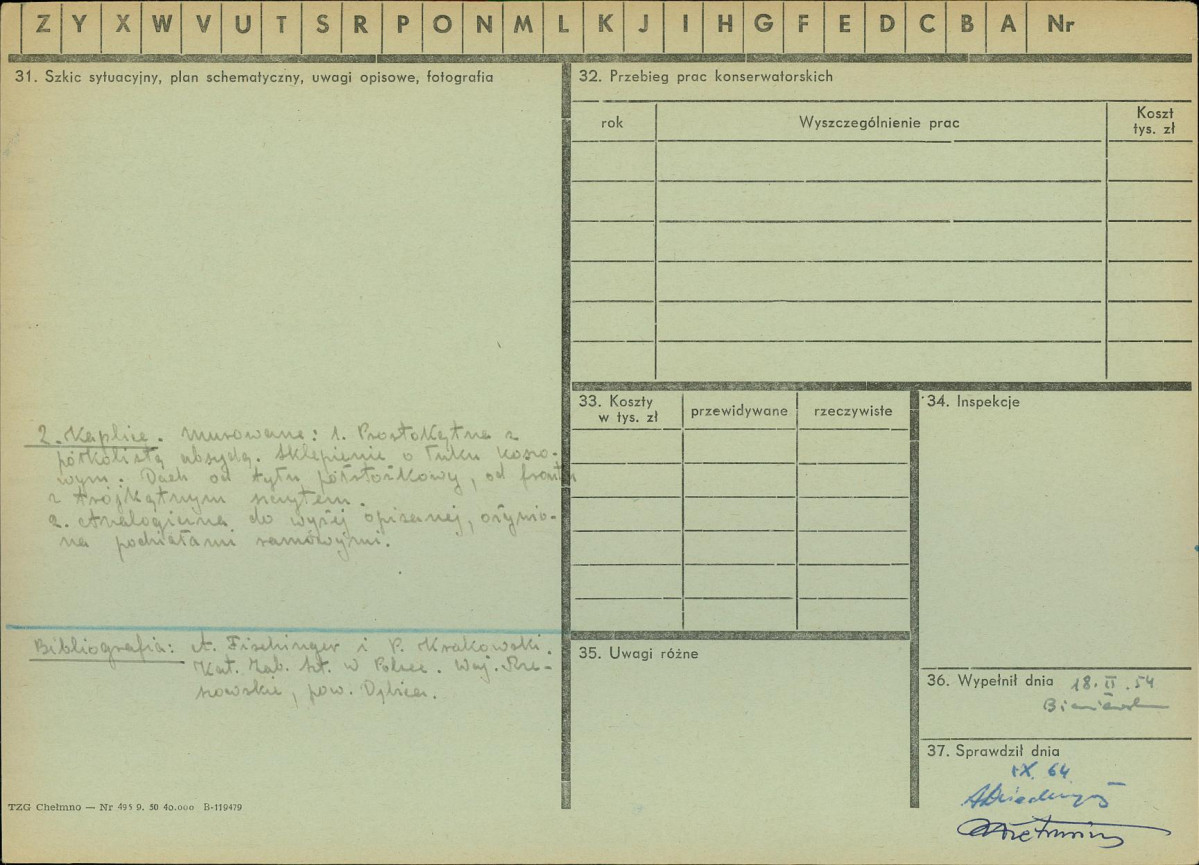 Z Y X W V U T S R P O N M L K J I H G F E D C B A Nr
31. Szkic sytuacyjny, plan schematyczny, uwagi opisowe, fotografia
2. Kaplice. Murowane: 1. Prostokątna z
półkolistą absydą. Sklepienie o łuku koszo-
wym. Dach od tyłu półstożkowy, od frontu
z trójkątnym szczytem.
2. Analogiczna do wyżej opisanej, ożywio-
na podziałami ramowymi.
Bibliografia: A. Fischinger i P. Krakowski.
Kat. Zab. Szt. w Polsce. Woj. Rze-
szowskie, pow. Dębica.
TZG Chełmno — Nr 495 9. 50 40.000 B-119479
32. Przebieg prac konserwatorskich
rok
Wyszczególnienie prac
Koszt
tys. zł
33. Koszty
w tys. zł
przewidywane
rzeczywiste
34. Inspekcje
35. Uwagi różne
36. Wypełnił dnia 18. II. 54
37. Sprawdził dnia
IX. 64